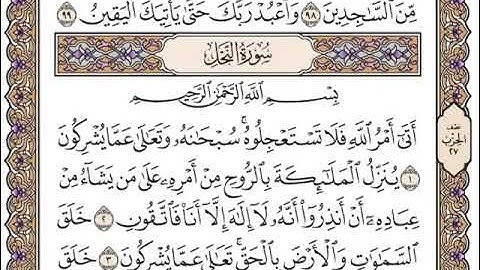 مِّنَ ٱلسَّٰجِدِينَ ٩٨ وَٱعۡبُدۡ رَبَّكَ حَتَّىٰ يَأۡتِيَكَ ٱلۡيَقِينُ ٩٩
سُورَةُ النَّحۡلِ
بِسۡمِ ٱللَّهِ ٱلرَّحۡمَٰنِ ٱلرَّحِيمِ
أَتَىٰٓ أَمۡرُ ٱللَّهِ فَلَا تَسۡتَعۡجِلُوهُۚ سُبۡحَٰنَهُۥ وَتَعَٰلَىٰ عَمَّا يُشۡرِكُونَ
١ يُنَزِّلُ ٱلۡمَلَٰٓئِكَةَ بِٱلرُّوحِ مِنۡ أَمۡرِهِۦ عَلَىٰ مَن يَشَآءُ مِنۡ
عِبَادِهِۦٓ أَنۡ أَنذِرُوٓاْ أَنَّهُۥ لَآ إِلَٰهَ إِلَّآ أَنَا۠ فَٱتَّقُونِ ٢ خَلَقَ
ٱلسَّمَٰوَٰتِ وَٱلۡأَرۡضَ بِٱلۡحَقِّۚ تَعَٰلَىٰ عَمَّا يُشۡرِكُونَ ٣ خَلَقَ
نصف
الحزب
٢٧